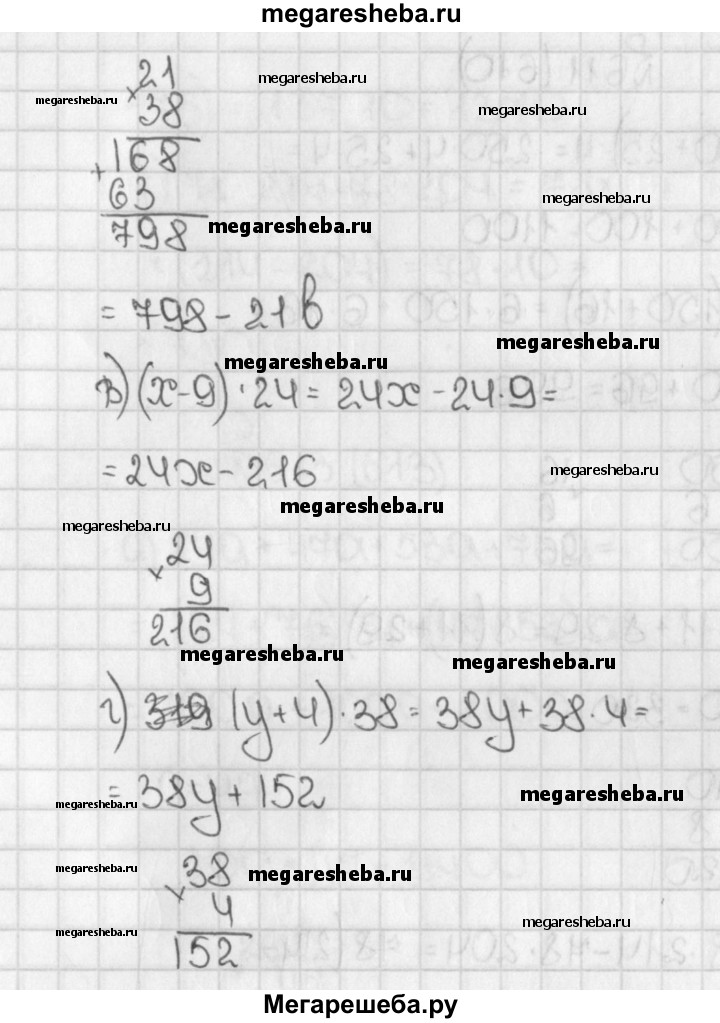 megaresheba.ru
21
megaresheba.ru
megaresheba.ru
× 38
megaresheba.ru
168
+ 63
megaresheba.ru
798
megaresheba.ru
= 798 - 21b
megaresheba.ru
megaresheba.ru
в) (x-9)·24 = 24x - 24·9 =
= 24x - 216
megaresheba.ru
megaresheba.ru
megaresheba.ru
24
× 9
216
megaresheba.ru
megaresheba.ru
г) (y+4)·38 = 38y + 38·4 =
= 38y + 152
megaresheba.ru
megaresheba.ru
38
megaresheba.ru
megaresheba.ru
× 4
megaresheba.ru
megaresheba.ru
152
Мегарешеба.ру